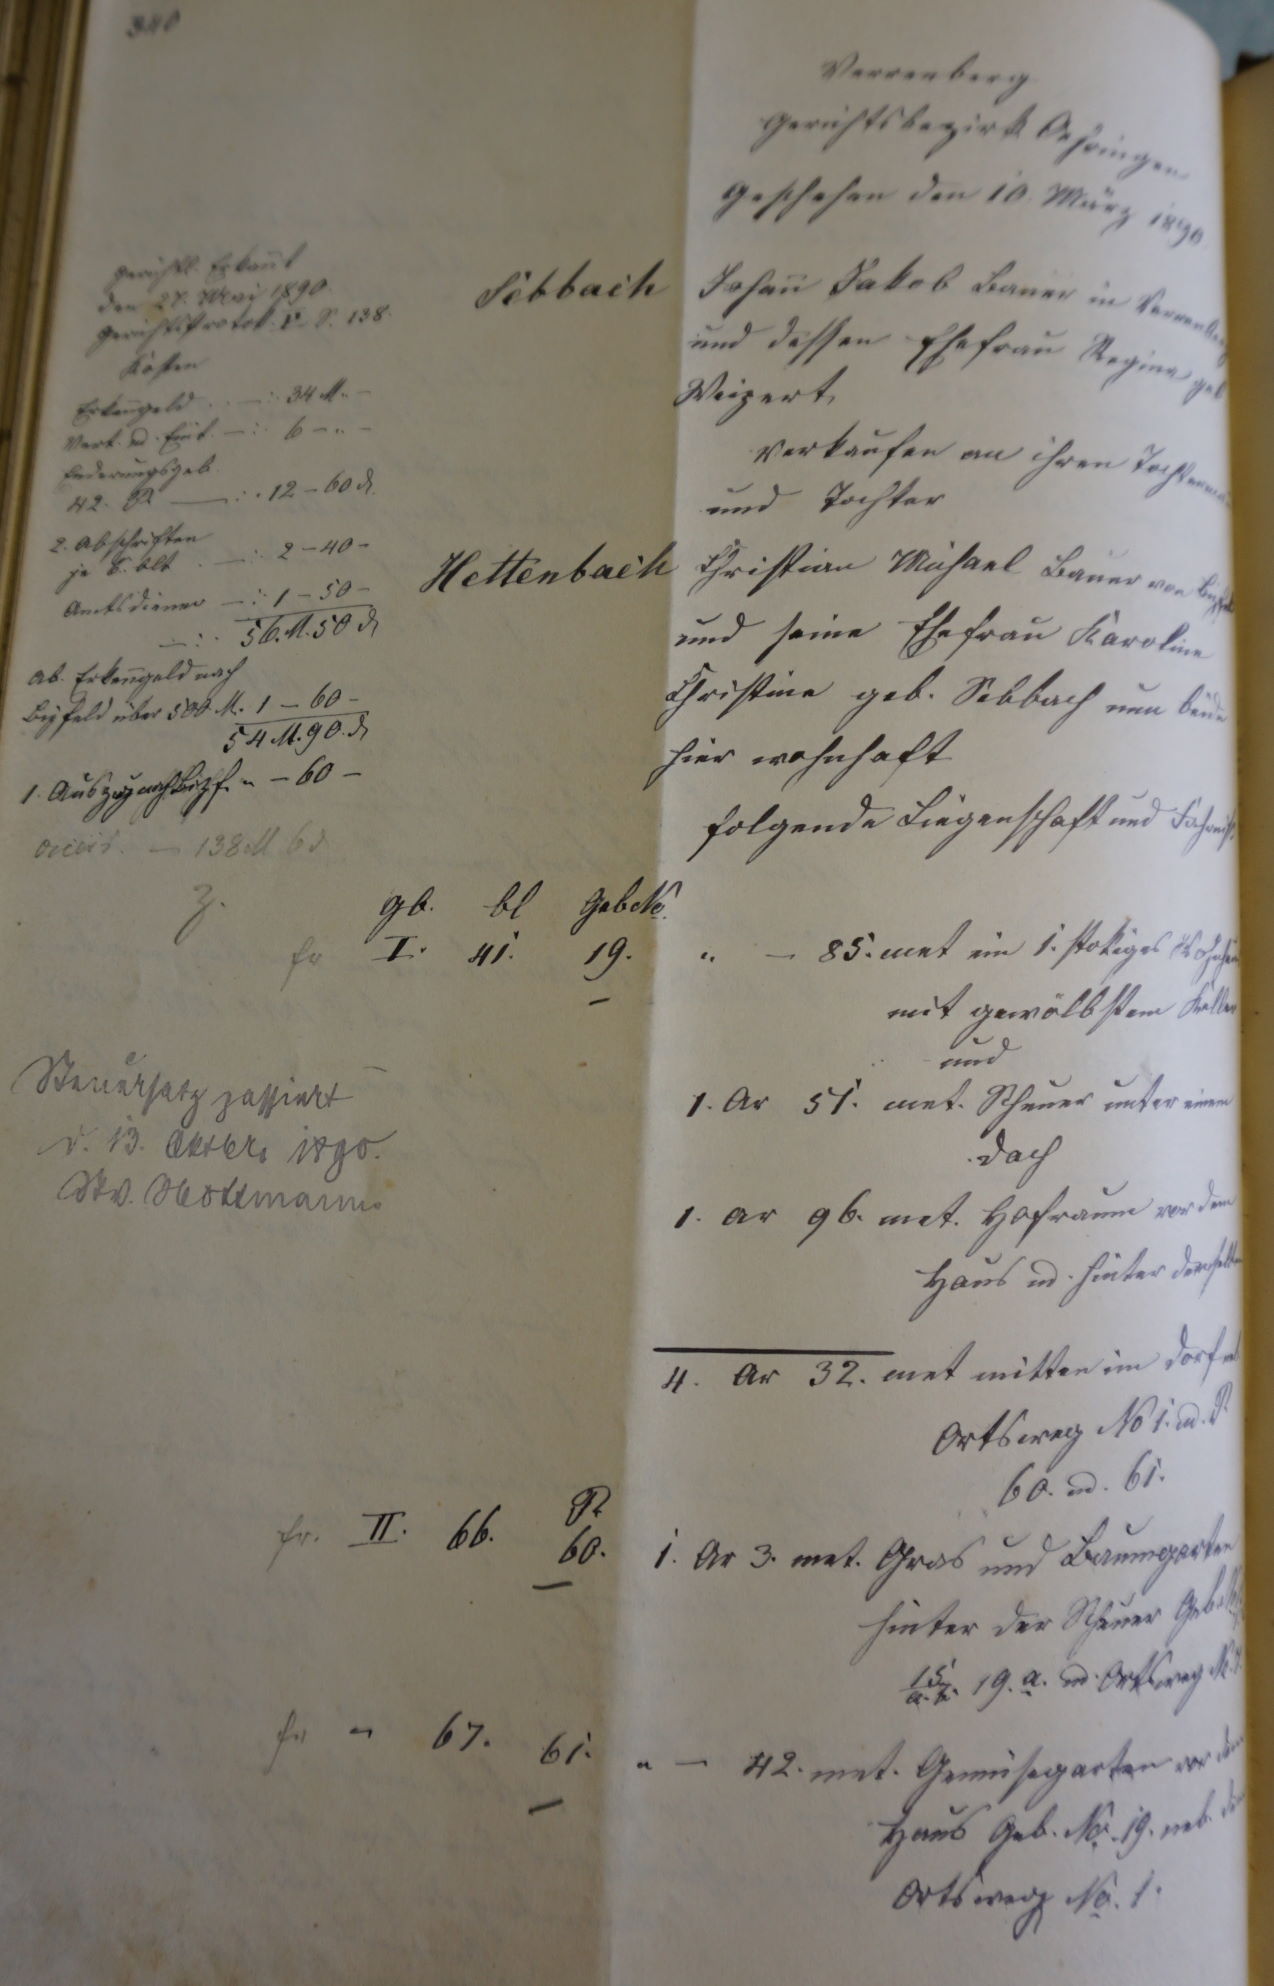 340
Verrenberg
Gerichtsbezirk Oehringen
Geschehen den 10. März 1890.
gerichtl. Erkannt
den 27. May 1890.
Gerichtsprotok. S. 138.
Kosten
Erkenngeld . — : 34 M. –
Vert. u. — : 6 – „ –
Enderungsgeb.
42. P — : 12 – 60 d.
2. Abschriften
je 6. blt — : 2 – 40 –
Amtsdiener — : 1 – 50 –
— : 56. M. 50 d
ab. Erkenngeld nach
über 500 M. 1 – 60 –
54 M. 90. d
1. Auszug nach Bizf. „ – 60 –
138 M 6 d
Sebbach
Johann Jakob Bauer in Verrenberg
und dessen Ehefrau Regina geb
Weizert,
verkaufen an ihren Tochtermann
und Tochter
Hettenbach
Christian Michael Bauer von
und seine Ehefrau Karoline
Christine geb. Sebbach nun beide
hier wohnhaft
folgende Liegenschaft und Fahrniß.
gb. bl Geb No.
fr I. 41. 19. „ – 85. met ein 1. stokiges Wohnhaus
mit gewölbtem Keller
und
1. Ar 51. met. Scheuer unter einem
Dach
1. Ar 96. met. Hofraum vor dem
Haus u. hinter demselben
4. Ar 32. met mitten im Dorf neb
Ortsweg No 1. u. P.
60. u. 61.
Steuersatz passiert
d. 13. Oktbr. 1890.
P
fr. II. 66. 60. 1. Ar 3. met. Gras und Baumgarten
hinter der Scheuer Geb. No
19. a. u. Ortsweg No. 1.
fr „ 67. 61. „ – 42. met. Gemüsegarten vor dem
Haus Geb. No. 19. neb. dem
Ortsweg No. 1.